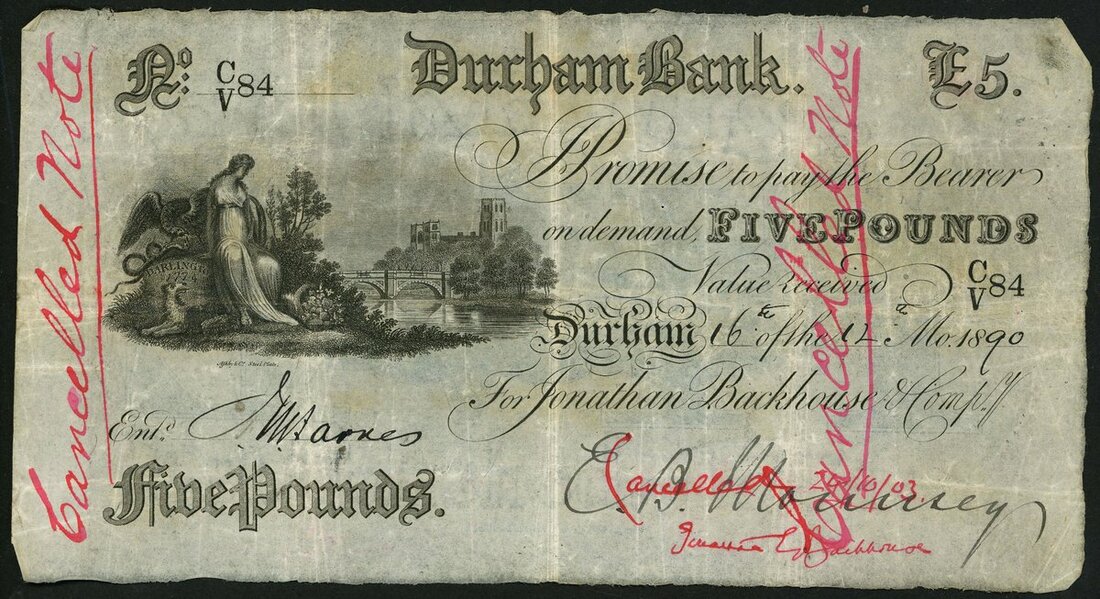 Cancelled Note
No: C/V 84
Durham Bank. £5.
I Promise to pay the Bearer
on demand, FIVE POUNDS
Value received C/V 84
Durham 16th of the 12th Mo. 1890
For Jonathan Backhouse & Compy.
DARLINGTON
1774
Entd.
Five Pounds.
Cancelled
Jonathan E. Backhouse
Cancelled Note